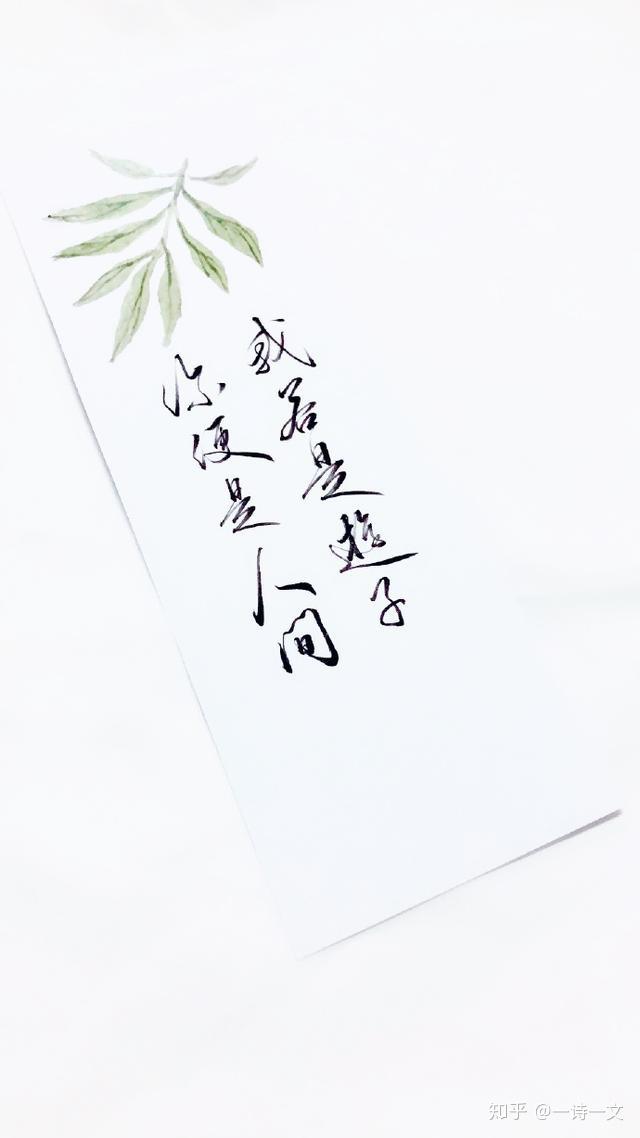 我若是遊子
你便是人间
知乎 @一诗一文